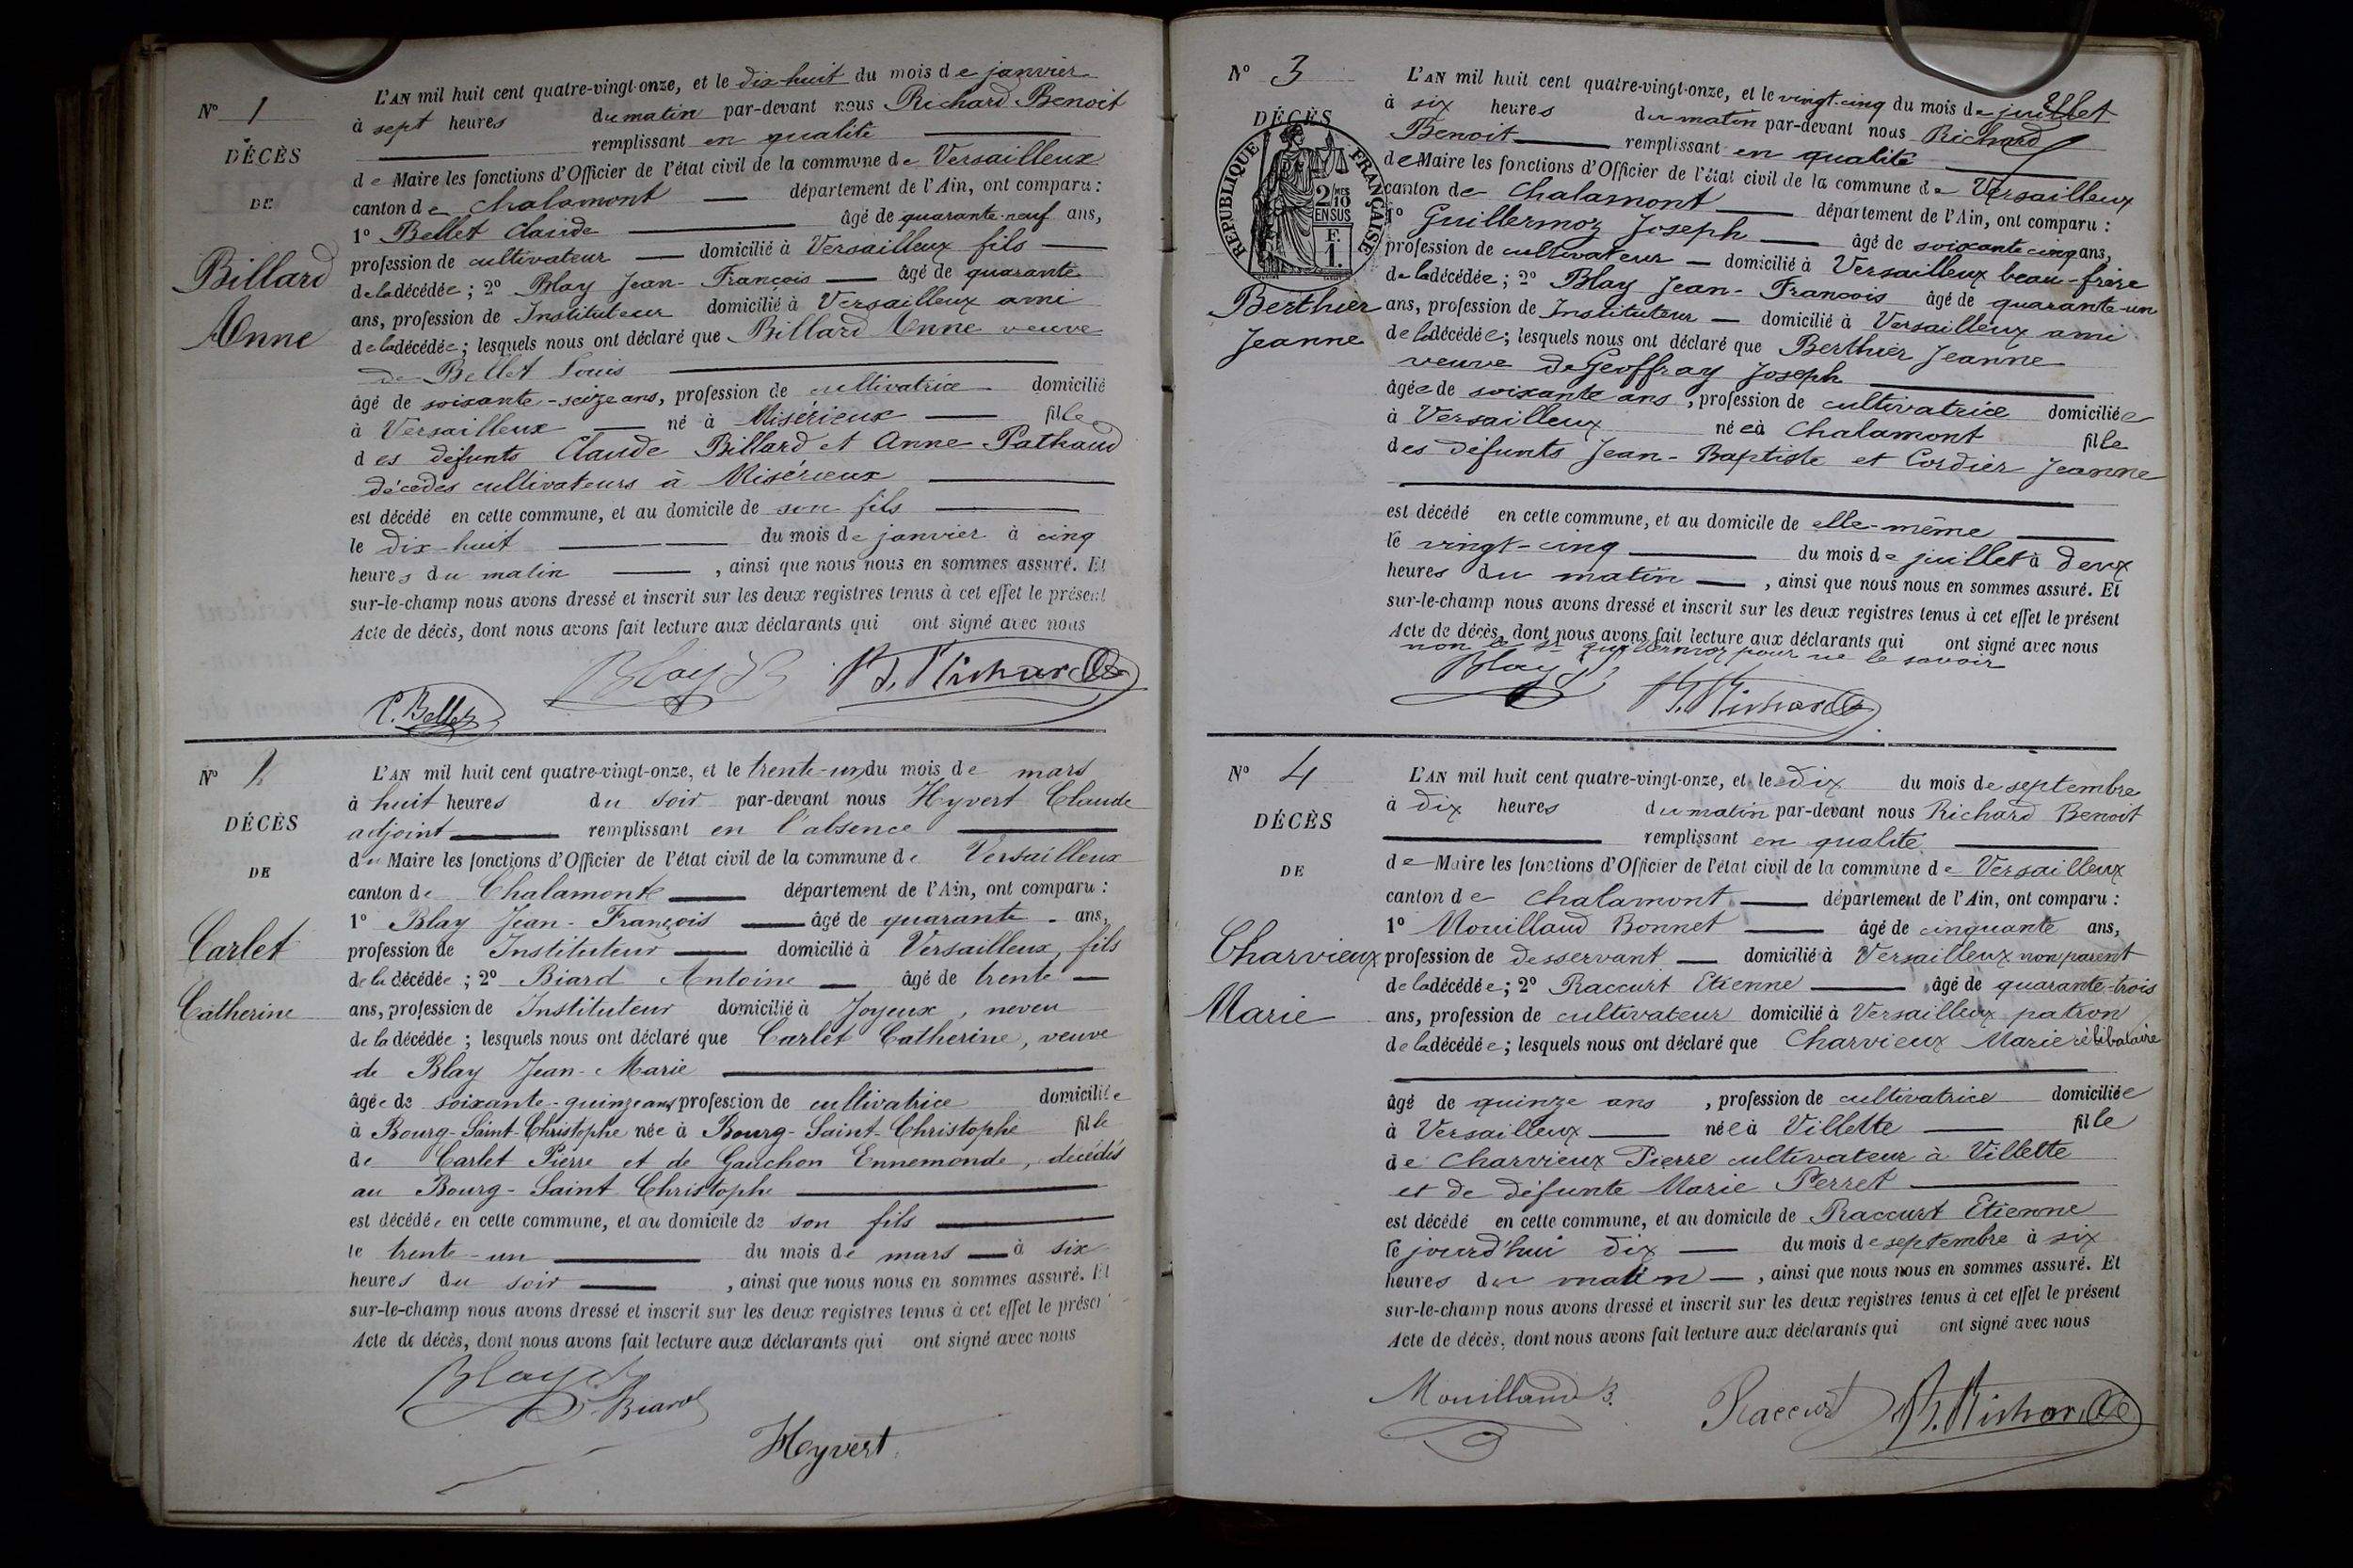 N° 1
DÉCÈS
DE
Billard
Anne
L'AN mil huit cent quatre-vingt-onze, et le dix-huit du mois de janvier
à sept heures du matin par-devant nous Richard Benoit
remplissant en qualité
de Maire les fonctions d'Officier de l'état civil de la commune de Versailleux
canton de Chalamont département de l'Ain, ont comparu :
1° Bellet Claude âgé de quarante-neuf ans,
profession de cultivateur domicilié à Versailleux fils
de la décédée ; 2° Blay Jean-François âgé de quarante
ans, profession de Instituteur domicilié à Versailleux ami
de la décédée ; lesquels nous ont déclaré que Billard Anne veuve
de Bellet Louis
âgé de soixante-seize ans, profession de cultivatrice domicilié
à Versailleux né à Misérieux fille
des défunts Claude Billard et Anne Pathaud
décédés cultivateurs à Misérieux
est décédé en cette commune, et au domicile de son fils
le dix-huit du mois de janvier à cinq
heures du matin , ainsi que nous nous en sommes assuré. Et
sur-le-champ nous avons dressé et inscrit sur les deux registres tenus à cet effet le présent
Acte de décès, dont nous avons fait lecture aux déclarants qui ont signé avec nous
Blay B. Richard
C. Bellet
N° 2
DÉCÈS
DE
Carlet
Catherine
L'AN mil huit cent quatre-vingt-onze, et le trente-un du mois de mars
à huit heures du soir par-devant nous Hyvert Claude
adjoint remplissant en l'absence
du Maire les fonctions d'Officier de l'état civil de la commune de Versailleux
canton de Chalamont département de l'Ain, ont comparu :
1° Blay Jean-François âgé de quarante ans,
profession de Instituteur domicilié à Versailleux, fils
de la décédée ; 2° Biard Antoine âgé de trente
ans, profession de Instituteur domicilié à Joyeux, neveu
de la décédée ; lesquels nous ont déclaré que Carlet Catherine, veuve
de Blay Jean-Marie
âgée de soixante-quinze ans profession de cultivatrice domiciliée
à Bourg-Saint-Christophe née à Bourg-Saint-Christophe fille
de Carlet Pierre et de Gauchon Ennemonde, décédés
au Bourg-Saint Christophe
est décédée en cette commune, et au domicile de son fils
le trente-un du mois de mars à six
heures du soir , ainsi que nous nous en sommes assuré. Et
sur-le-champ nous avons dressé et inscrit sur les deux registres tenus à cet effet le présent
Acte de décès, dont nous avons fait lecture aux déclarants qui ont signé avec nous
Blay
Biard
Hyvert
N° 3
DÉCÈS
RÉPUBLIQUE FRANÇAISE
2/10 MES
EN SUS
F.
1.
Berthier
Jeanne
L'AN mil huit cent quatre-vingt-onze, et le vingt-cinq du mois de juillet
à six heures du matin par-devant nous Richard
Benoit remplissant en qualité
de Maire les fonctions d'Officier de l'état civil de la commune de Versailleux
canton de Chalamont département de l'Ain, ont comparu :
1° Guillermoz Joseph âgé de soixante cinq ans,
profession de cultivateur domicilié à Versailleux beau-frère
de la décédée ; 2° Blay Jean-François âgé de quarante-un
ans, profession de Instituteur domicilié à Versailleux ami
de la décédée ; lesquels nous ont déclaré que Berthier Jeanne
veuve de Geoffray Joseph
âgée de soixante ans, profession de cultivatrice domiciliée
à Versailleux née à Chalamont fille
des défunts Jean-Baptiste et Cordier Jeanne
est décédé en cette commune, et au domicile de elle-même
le vingt-cinq du mois de juillet à deux
heures du matin , ainsi que nous nous en sommes assuré. Et
sur-le-champ nous avons dressé et inscrit sur les deux registres tenus à cet effet le présent
Acte de décès, dont nous avons fait lecture aux déclarants qui ont signé avec nous
non le sr guillermoz pour ne le savoir
Blay
B. Richard
N° 4
DÉCÈS
DE
Charvieux
Marie
L'AN mil huit cent quatre-vingt-onze, et le dix du mois de septembre
à dix heures du matin par-devant nous Richard Benoit
remplissant en qualité
de Maire les fonctions d'Officier de l'état civil de la commune de Versailleux
canton de Chalamont département de l'Ain, ont comparu :
1° Mouillaud Bonnet âgé de cinquante ans,
profession de desservant domicilié à Versailleux non parent
de la décédée ; 2° Raccurt Etienne âgé de quarante-trois
ans, profession de cultivateur domicilié à Versailleux patron
de la décédée ; lesquels nous ont déclaré que Charvieux Marie célibataire
âgé de quinze ans , profession de cultivatrice domiciliée
à Versailleux née à Villette fille
de Charvieux Pierre cultivateur à Villette
et de défunte Marie Perret
est décédé en cette commune, et au domicile de Raccurt Etienne
le jourd'hui dix du mois de septembre à six
heures du matin , ainsi que nous nous en sommes assuré. Et
sur-le-champ nous avons dressé et inscrit sur les deux registres tenus à cet effet le présent
Acte de décès, dont nous avons fait lecture aux déclarants qui ont signé avec nous
Mouillaud B. Raccurt B. Richard